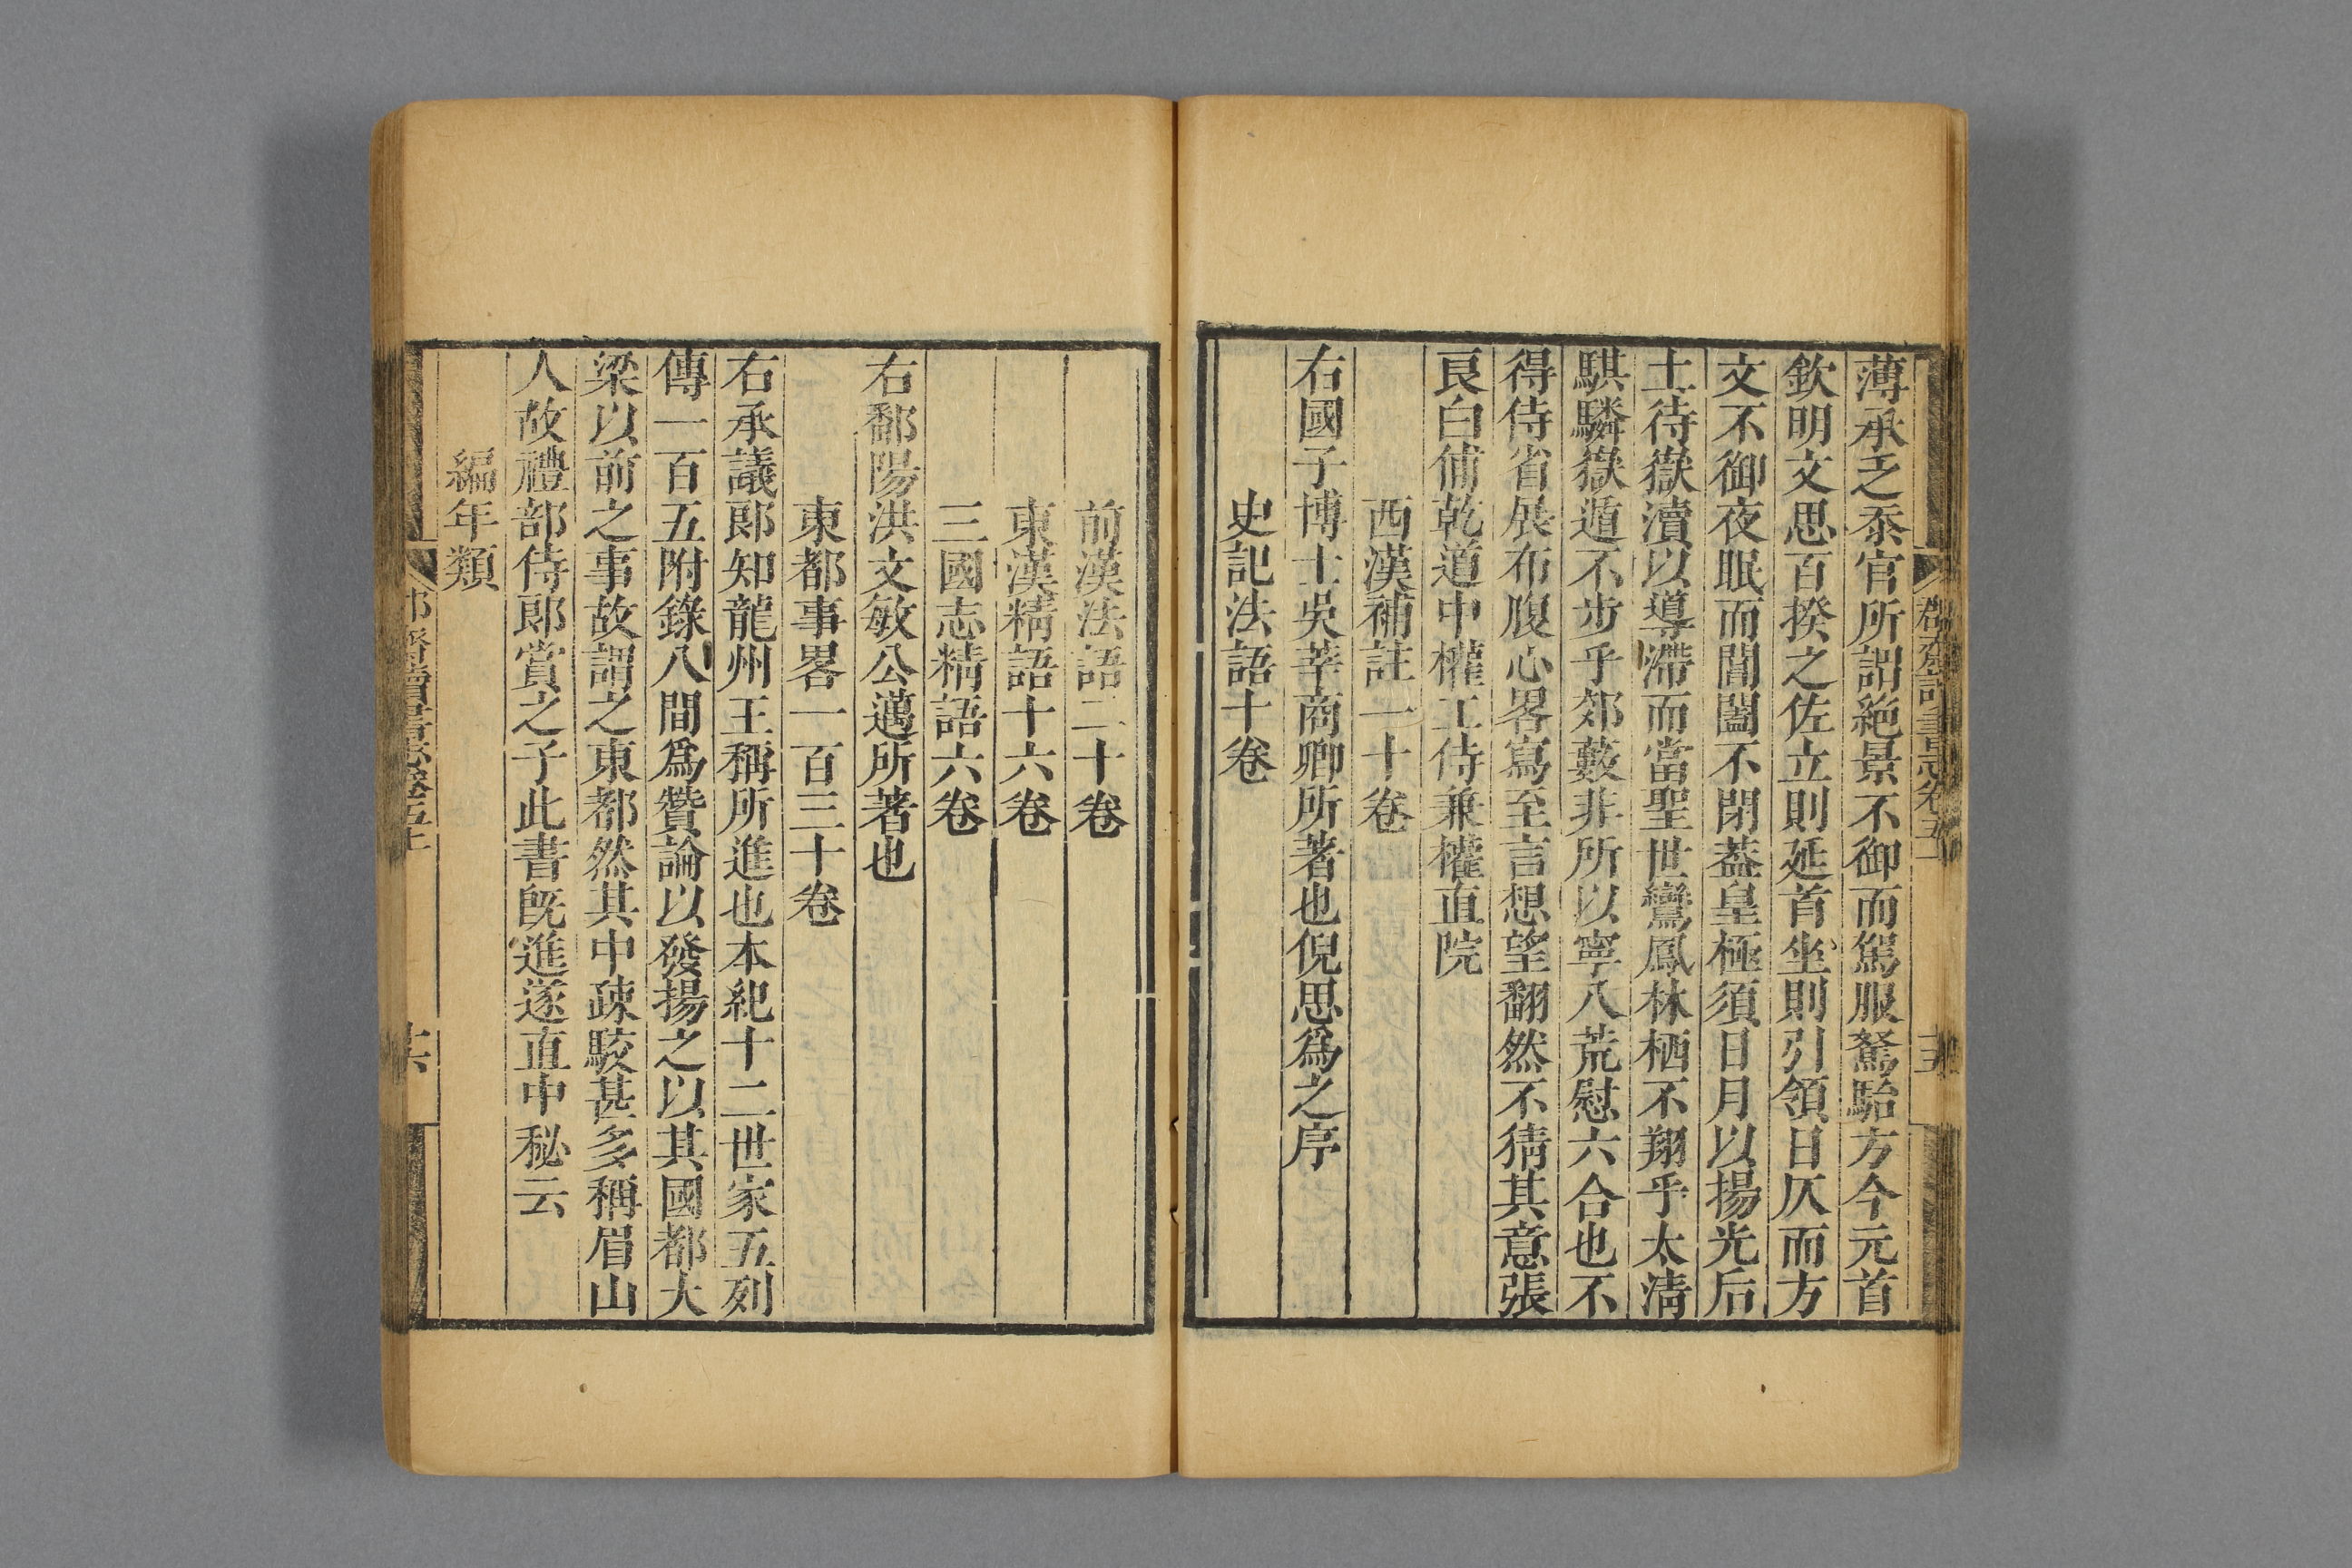 薄承乏忝官所詔絕景不御而駕服駑駘方今元首
欽明文思百揆之佐立則延首坐則引領日仄而方
文不御夜眠而閶闔不閉葢皇極須日月以揚光后
土待嶽瀆以導滯而當聖世鸞鳳林栖不翔乎太淸
騏驎嶽遁不步乎郊藪非所以寧八荒慰六合也不
得侍省展布腹心畧寫至言想望翻然不猜其意張
艮白俌乾道中權工侍兼權直院
西漢補註一十卷
右國子博士吳莘商卿所著也倪思爲之序
史記法語十卷
前漢法語二十卷
東漢精語十六卷
三國志精語六卷
右鄱陽洪文敏公邁所著也
東都事畧一百三十卷
右承議郎知龍州王稱所進也本紀十二世家五列
傳一百五附錄八間爲贊論以發揚之以其國都大
梁以前之事故謂之東都然其中疎駮甚多稱眉山
人故禮部侍郎賞之子此書旣進遂直中秘云
編年類